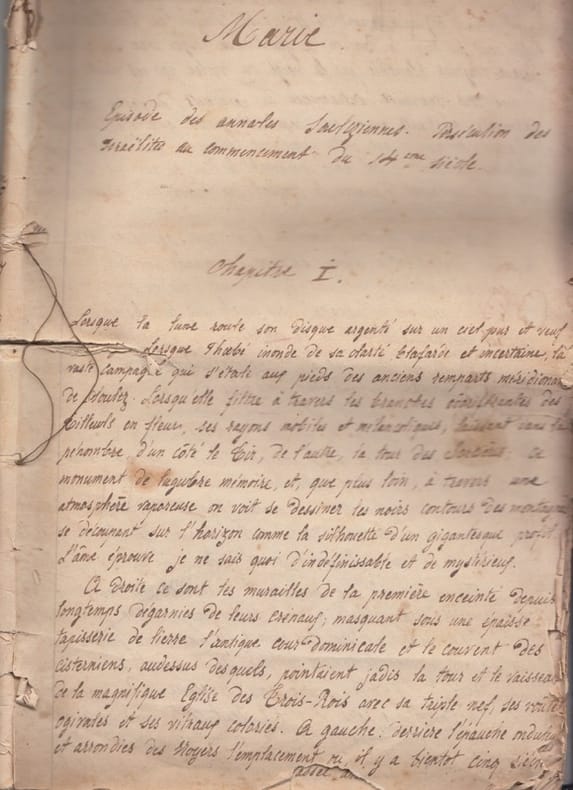 Marie
Episode des annales Soultziennes. Persécution des
Israélites au commencement du 14eme siècle.
Chapitre I.
Lorsque la lune roule son disque argenté sur un ciel pur et
Lorsque Phœbé inonde de sa clarté blafarde et incertaine, la
vaste campagne qui s'étale aux pieds des anciens remparts
de Soultz. Lorsqu'elle filtre à travers les branches des
tilleuls en fleur, ses rayons mobiles et mélancoliques, laissant dans la
pénombre, d'un côté le Tir, de l'autre, la tour des Sorcières, ce
monument de lugubre mémoire, et, que plus loin, à travers une
atmosphère vaporeuse on voit se dessiner les noirs contours des
se découpant sur l'horizon comme la silhouette d'un gigantesque profil
L'âme éprouve je ne sais quoi d'indéfinissable et de mystérieux.
A droite ce sont les murailles de la première enceinte depuis
longtemps dégarnies de leurs crénaux, masquant sous une épaisse
tapisserie de lierre l'antique cour dominicale et le couvent des
cisterniens, audessus desquels, pointaient jadis la tour et le vaisseau
de la magnifique Eglise des Trois-Rois avec sa triple nef, ses
ogivales et ses vitraux coloriés. A gauche, derrière
et arrondies des Noyers l'emplacement ou, il y a bientot cinq